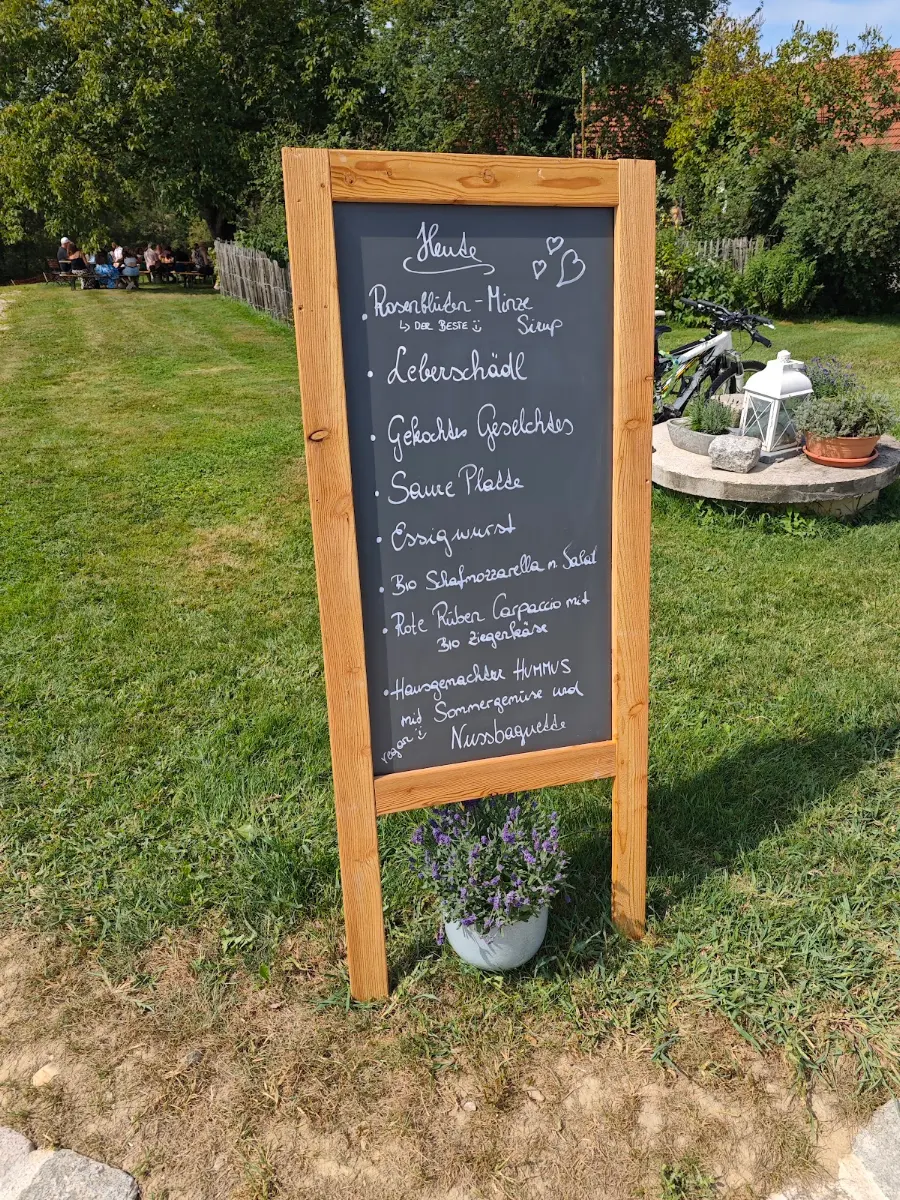 Heute
• Rosenblüten-Minze
↳ DER BESTE Sirup
• Leberschädl
• Gekochtes Geselchtes
• Saure Platte
• Essigwurst
• Bio Schafmozzarella m. Salat
• Rote Rüben Carpaccio mit
Bio Ziegenkäse
• Hausgemachter HUMMUS
mit Sommergemüse und
vegan Nussbaguette